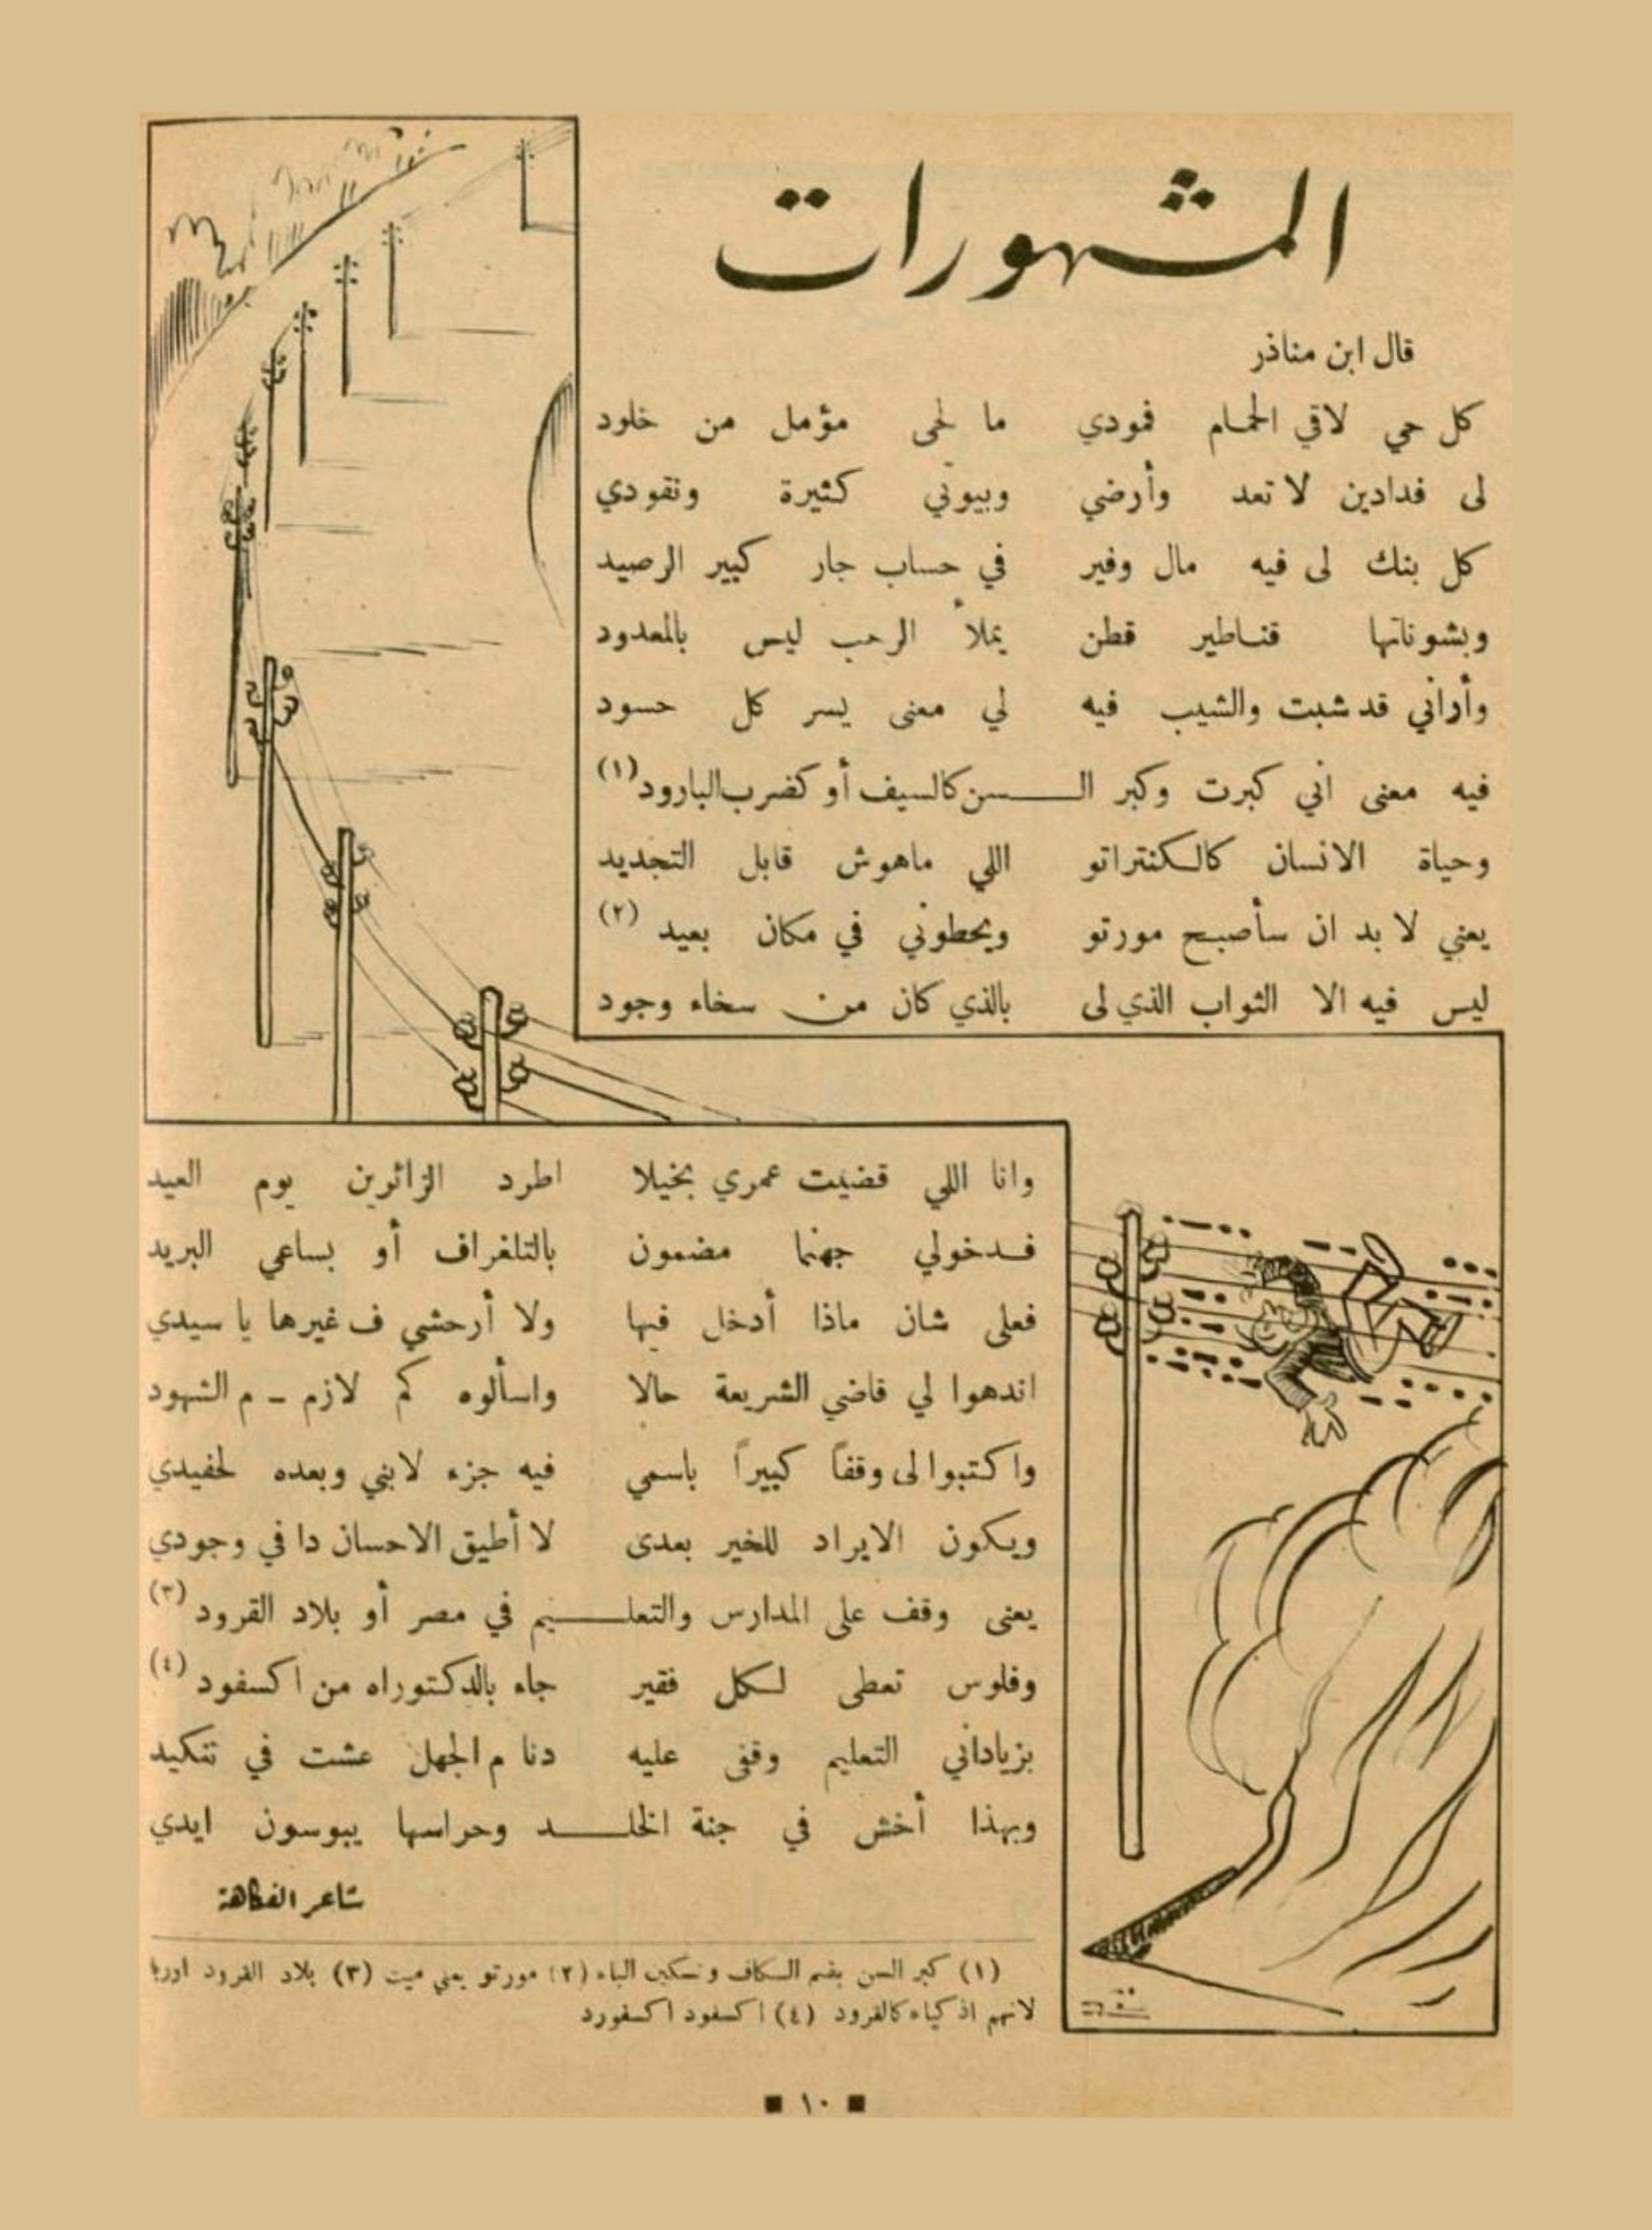 المشهورات
قال ابن مناذر
كل حي لاقي الحمام فمودي ما لحى مؤمل من خلود
لى فدادين لا تعد وأرضي وبيوتي كثيرة ونقودي
كل بنك لى فيه مال وفير في حساب جار كبير الرصيد
وبشوناتها قناطير قطن يملأ الرحب ليس بالمعدود
وأراني قد شبت والشيب فيه لي معنى يسر كل حسود
فيه معنى اني كبرت وكبر الـسن كالسيف أو كضرب البارود (١)
وحياة الانسان كالكنتراتو اللي ماهوش قابل التجديد
يعني لا بد ان سأصبح مورتو ويحطوني في مكان بعيد (٢)
ليس فيه الا الثواب الذي لى بالذي كان من سخاء وجود
وانا اللي قضيت عمري بخيلا اطرد الزائرين يوم العيد
فدخولي جهنما مضمون بالتلغراف أو بساعي البريد
فعلى شان ماذا أدخل فيها ولا أرحشي ف غيرها يا سيدي
اندهوا لي قاضي الشريعة حالا واسألوه كم لازم - م الشهود
واكتبوا لى وقفاً كبيراً باسمي فيه جزء لابني وبعده لحفيدي
ويكون الايراد للخير بعدى لا أطيق الاحسان دا في وجودي
يعنى وقف على المدارس والتعلـيم في مصر أو بلاد القرود (٣)
وفلوس تعطى لكل فقير جاء بالدكتوراه من اكسفود (٤)
بزياداني التعليم وقفى عليه دنا م الجهل عشت في تنكيد
وبهذا أخش في جنة الخلـد وحراسها يبوسون ايدي
شاعر الفكاهة
(١) كبر السن بضم الكاف وتسكين الباء (٢) مورتو يعني ميت (٣) بلاد القرود اوربا
لانهم اذكياء كالقرود (٤) اكسفود اكسفورد
١٠